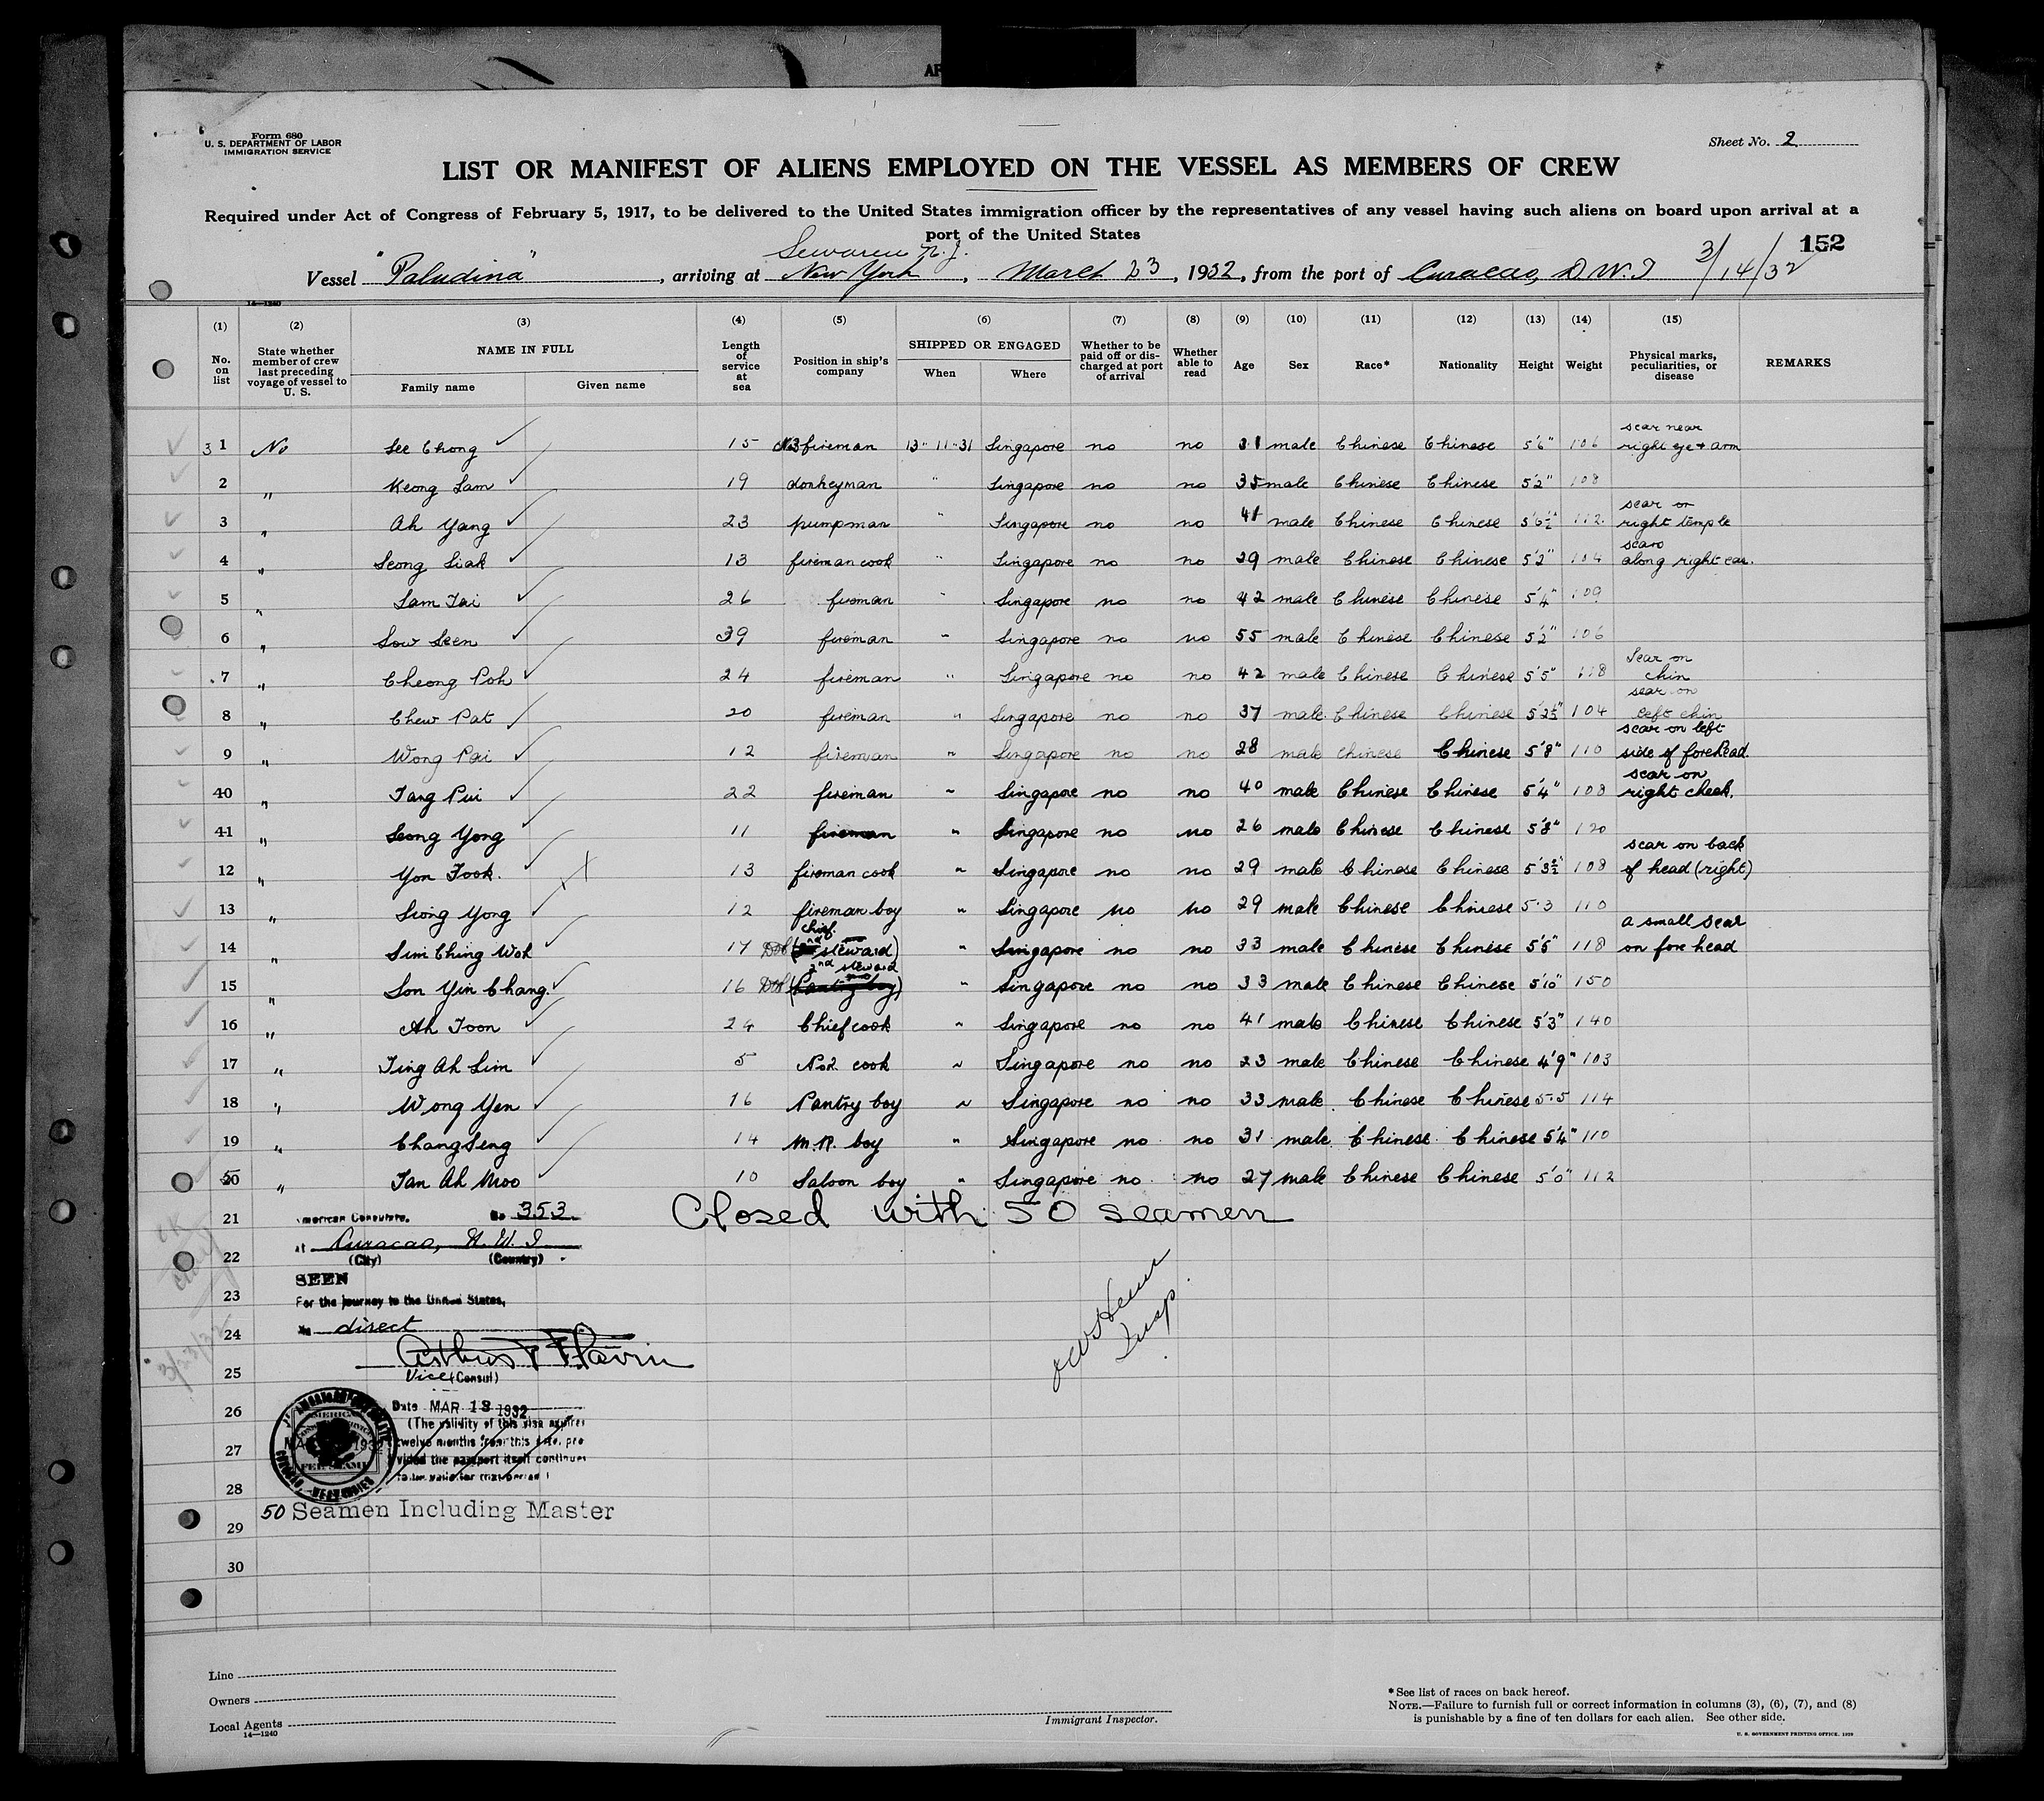 Form 680
U. S. DEPARTMENT OF LABOR
IMMIGRATION SERVICE
Sheet No. 2
LIST OR MANIFEST OF ALIENS EMPLOYED ON THE VESSEL AS MEMBERS OF CREW
Required under Act of Congress of February 5, 1917, to be delivered to the United States immigration officer by the representatives of any vessel having such aliens on board upon arrival at a
port of the United States
152
Sewaren N.J.
Vessel "Paludina", arriving at New York, March 23, 1932, from the port of Curacao, D.W.I 3/14/32
14—1240
(1) (2) (3) (4) (5) (6) (7) (8) (9) (10) (11) (12) (13) (14) (15)
No. on list
State whether member of crew last preceding voyage of vessel to U. S.
NAME IN FULL
Family name Given name
Length of service at sea
Position in ship's company
SHIPPED OR ENGAGED
When Where
Whether to be paid off or discharged at port of arrival
Whether able to read
Age Sex Race* Nationality Height Weight
Physical marks, peculiarities, or disease
REMARKS
31 No See Chong 15 No3 fireman 13-11-31 Singapore no no 31 male Chinese Chinese 5'6" 106 scar near right eye + arm
2 " Keong Sam 19 donkeyman " Singapore no no 35 male Chinese Chinese 5'2" 108
3 " Ah Yang 23 pumpman " Singapore no no 41 male Chinese Chinese 5'6½" 112 scar on right temple
4 " Seong Siak 13 fireman cook " Singapore no no 29 male Chinese Chinese 5'2" 104 scars along right ear.
5 " Sam Tai 26 fireman " Singapore no no 42 male Chinese Chinese 5'4" 109
6 " Sow Seen 39 fireman " Singapore no no 55 male Chinese Chinese 5'2" 106
7 " Cheong Poh 24 fireman " Singapore no no 42 male Chinese Chinese 5'5" 118 Scar on chin
8 " Chew Pat 20 fireman " Singapore no no 37 male Chinese Chinese 5'2½" 104 scar on left chin
9 " Wong Pai 12 fireman " Singapore no no 28 male Chinese Chinese 5'8" 110 scar on left side of forehead
40 " Tang Pui 22 fireman " Singapore no no 40 male Chinese Chinese 5'4" 108 scar on right cheek.
41 " Seong Yong 11 fireman " Singapore no no 26 male Chinese Chinese 5'8" 120
12 " Yon Fook. 13 fireman cook " Singapore no no 29 male Chinese Chinese 5'3½" 108 scar on back of head (right)
13 " Siong Yong 12 fireman boy " Singapore no no 29 male Chinese Chinese 5-3 110
14 " Sim Ching Wok 17 (chief steward) " Singapore no no 33 male Chinese Chinese 5'5" 118 a small scar on fore head
15 " Son Yin Chang. 16 2nd steward (Pantry boy) " Singapore no no 33 male Chinese Chinese 5'10" 150
16 " Ah Toon 24 Chief cook " Singapore no no 41 male Chinese Chinese 5'3" 140
17 " Ting Ah Lim 5 No2. cook " Singapore no no 23 male Chinese Chinese 4'9" 103
18 " Wong Yen 16 Pantry boy " Singapore no no 33 male Chinese Chinese 5-5 114
19 " Chang Seng 14 M.R. boy " Singapore no no 31 male Chinese Chinese 5'4" 110
50 " Tan Ah Moo 10 Saloon boy " Singapore no no 27 male Chinese Chinese 5'0" 112
21 American Consulate. No 353 Closed with 50 seamen
at Curacao, N.W.I
22 (City) (Country)
SEEN
23 For the journey to the United States,
24 Via direct
Arthur F Flavin
25 Vice (Consul)
Insp.
26 Date MAR 18 1932
(The validity of this visa expires
27 twelve months from this date, pro
vided the passport itself continues
28 to be valid for that period)
50 Seamen Including Master
29
30
OK
3/23/32
Line
Owners
Local Agents
14—1240
Immigrant Inspector.
*See list of races on back hereof.
NOTE.—Failure to furnish full or correct information in columns (3), (6), (7), and (8)
is punishable by a fine of ten dollars for each alien. See other side.
U. S. GOVERNMENT PRINTING OFFICE. 1929